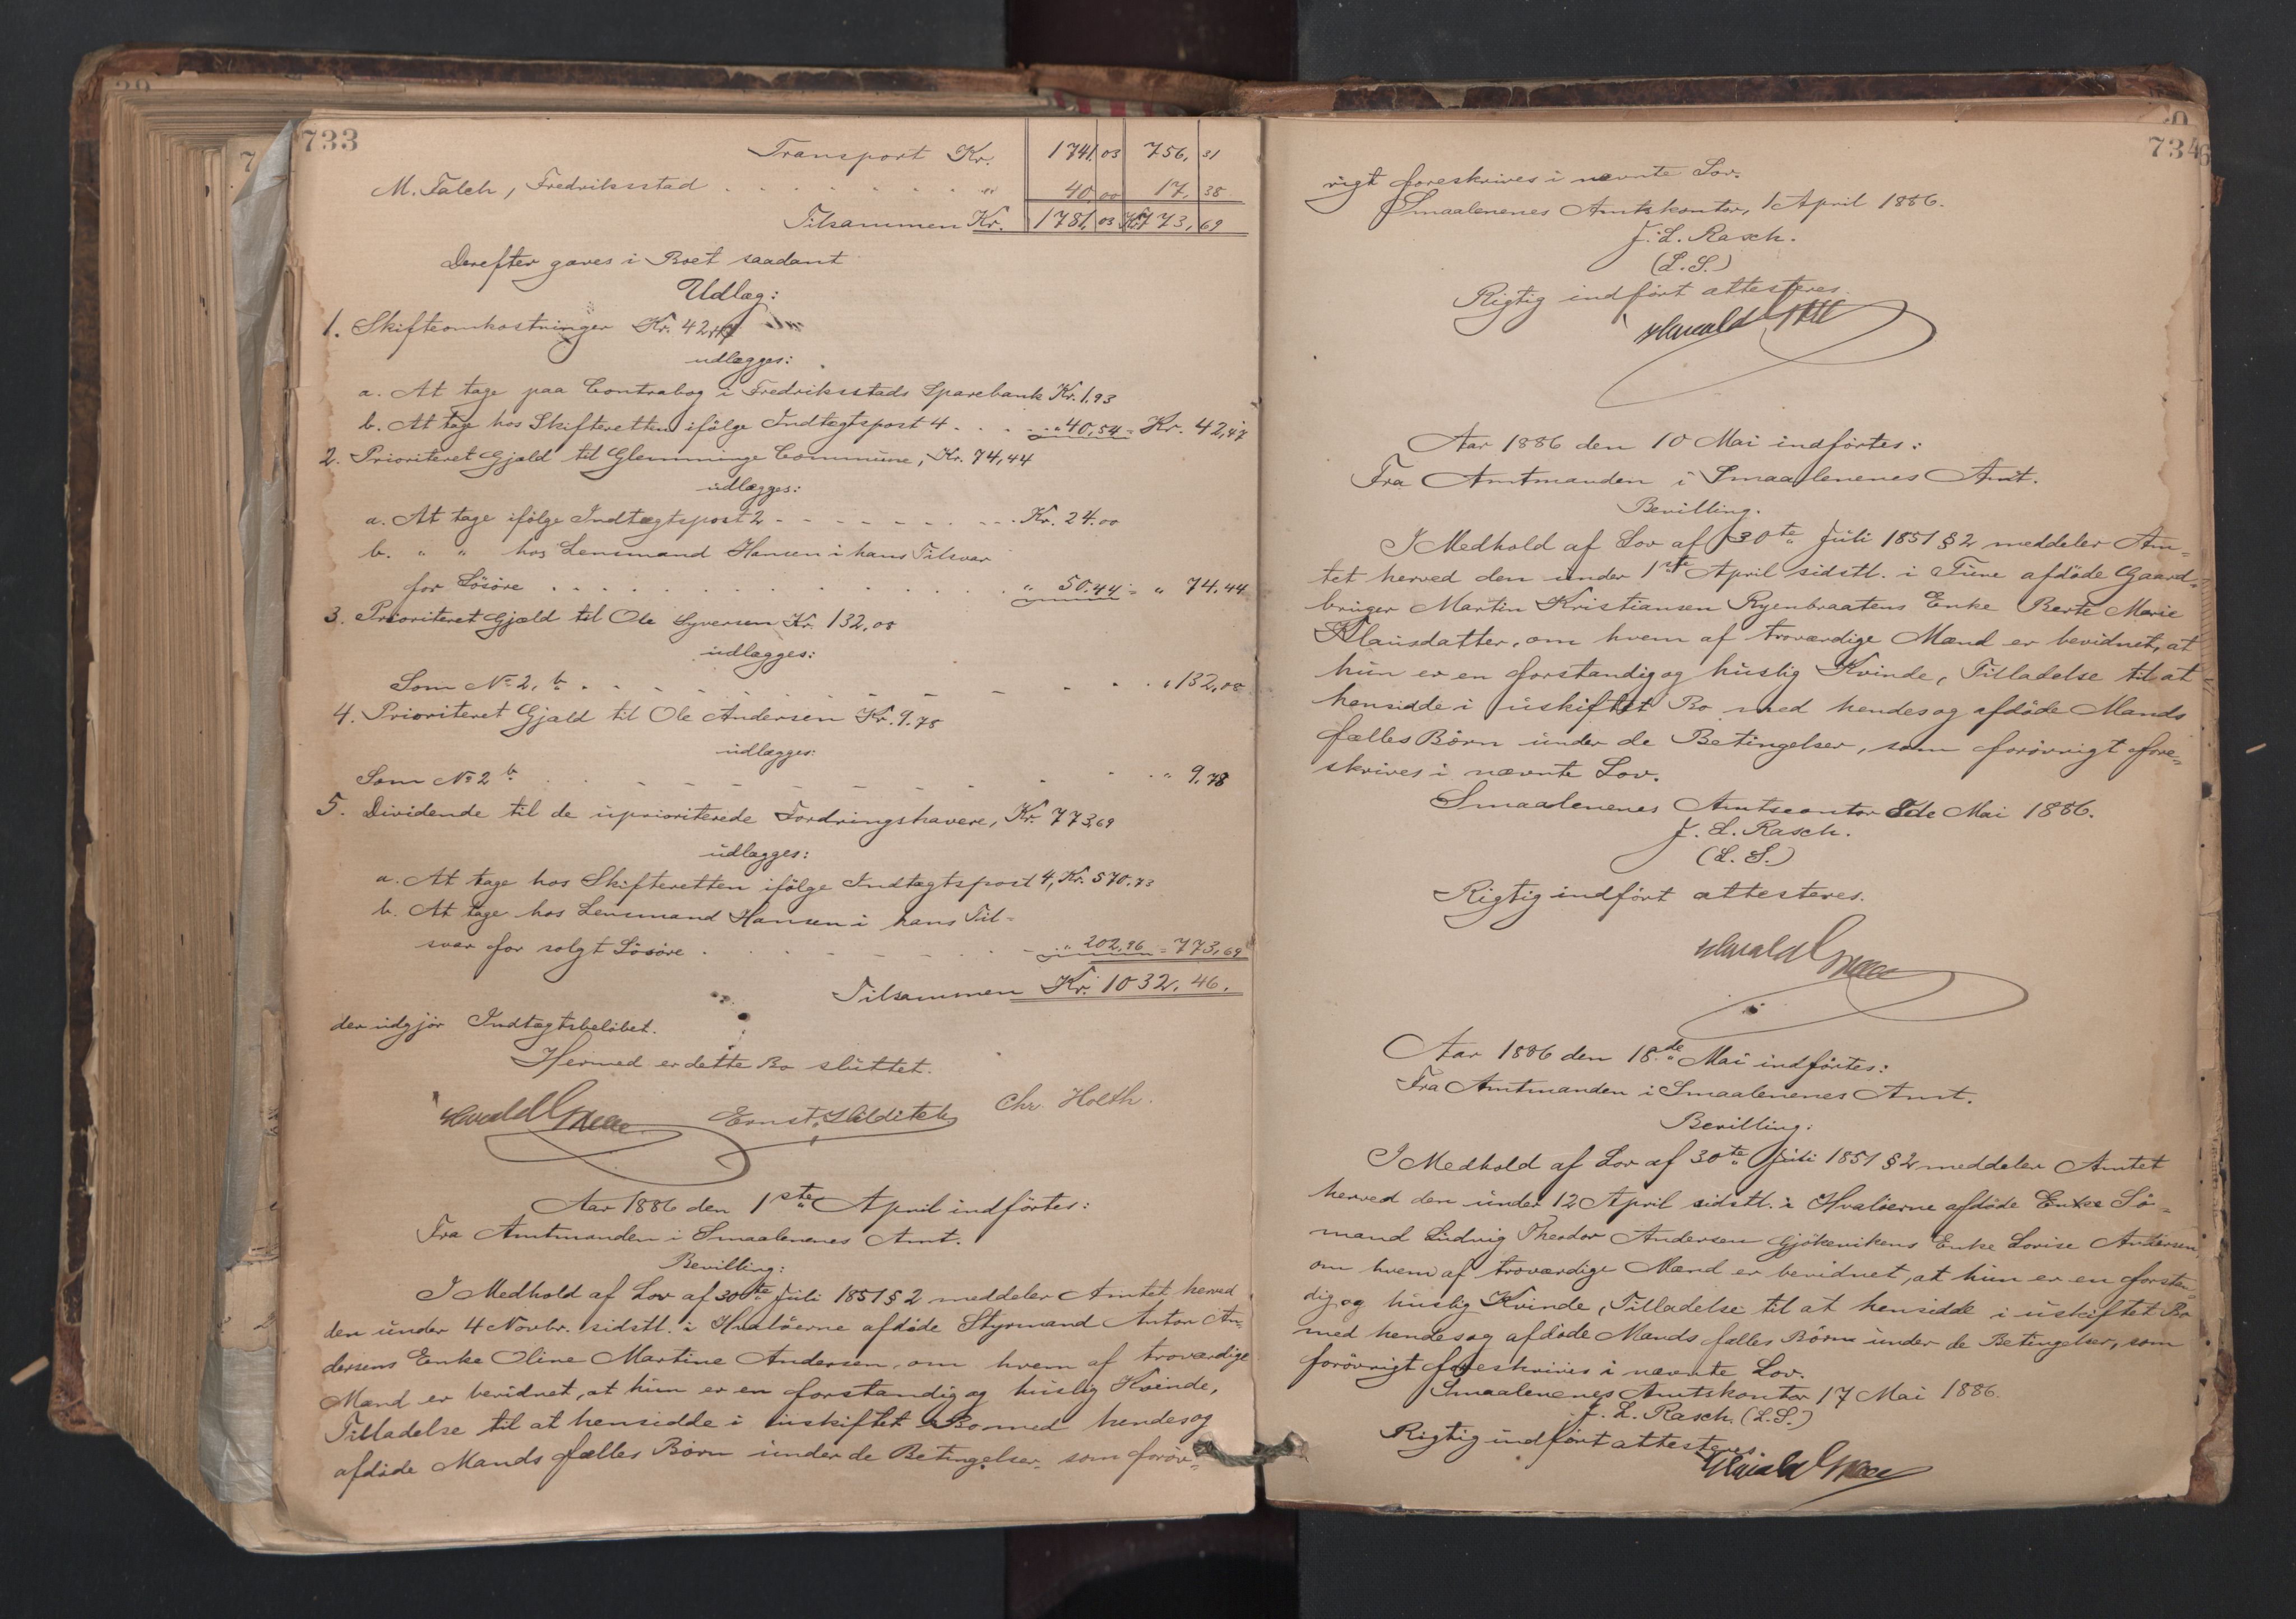 733
Transport Kr. 1741,03 756,31
M. Falch, Fredriksstad . . . . . . . " 40,00 17,38
Tilsammen Kr. 1781,03 Kr. 773,69
Derefter gøres i Boet saadant
Udlæg:
1. Skifteomkostninger Kr. 42,47
udlægges:
a. At tage paa Contrabog i Fredriksstads Sparebank Kr. 1.93
b. At tage hos Skifteretten ifølge Indtægtspost 4 . . . . " 40,54 = Kr. 42,47
2. Prioriteret Gjæld til Glemminge Commune, Kr. 74,44
udlægges:
a. At tage ifølge Indtægtspost 2 - - - - - - - - Kr. 24.00
b. " " hos Lensmand Hansen i hans Tilsvar
for Løsøre . . . . . . . . . . . " 50.44 = " 74.44
3. Prioriteret Gjæld til Ole Syversen Kr. 132,00
udlægges:
Som No 2, b . . - - - - - - - . . " 132,00
4. Prioriteret Gjæld til Ole Andersen Kr. 9.78
udlægges:
Som No 2 b . . - - - - - - - . . " 9.78
5. Dividende til de uprioriterede Fordringshavere, Kr. 773,69
udlægges:
a. At tage hos Skifteretten ifølge Indtægtspost 4, Kr. 570.73
b. At tage hos Lensmand Hansen i hans Til-
svar for solgt Løsøre . . - - - - - " 202,96 = 773,69
Tilsammen Kr. 1032.46.
der udgjør Indtægtsbeløbet.
Hermed er dette Bo sluttet.
Ernst Hilditch Chr. Holth.
Aar 1886 den 1ste April indførtes:
Fra Amtmanden i Smaalenenes Amt.
Bevilling:
I Medhold af Lov af 30te Juli 1851 § 2 meddeler Amtet herved
den under 4 Novbr. sidstl. i Hvaløerne afdøde Styrmand Anton An-
dersens Enke Oline Martine Andersen, om hvem af troværdige
Mænd er bevidnet, at hun er en forstandig og huslig Kvinde,
Tilladelse til at hensidde i uskiftet Bo med hendes og
afdøde Mands fælles Børn under de Betingelser, som forøv-
734
rigt foreskrives i nævnte Lov.
Smaalenenes Amtskontor, 1 April 1886.
J. L. Rasch.
(L.S.)
Rigtig indført attesteres.
Aar 1886 den 10 Mai indførtes:
Fra Amtmanden i Smaalenenes Amt.
Bevilling.
I Medhold af Lov af 30te Juli 1851 § 2 meddeler Am-
tet herved den under 1ste April sidstl. i Tune afdøde Gaard-
bruger Martin Kristiansen Ryenbraatens Enke Berte Marie
Klausdatter, om hvem af troværdige Mænd er bevidnet, at
hun er en forstandig og huslig Kvinde, Tilladelse til at
hensidde i uskiftet Bo med hendes og afdøde Mands
fælles Børn under de Betingelser, som forøvrigt fore-
skrives i nævnte Lov.
Smaalenenes Amtscontor 8de Mai 1886.
J. L. Rasch.
(L. S.)
Rigtig indført attesteres.
Aar 1886 den 18de Mai indførtes:
Fra Amtmanden i Smaalenenes Amt.
Bevilling:
I Medhold af Lov af 30te Juli 1851 § 2 meddeler Amtet
herved den under 12 April sidstl. i Hvaløerne afdøde Enke Sø-
mand Ludvig Theodor Andersen Gjøkevikens Enke Lovise Andersen,
om hvem af troværdige Mænd er bevidnet, at hun er en forstan-
dig og huslig Kvinde, Tilladelse til at hensidde i uskiftet Bo
med hendes og afdøde Mands fælles Børn under de Betingelser, som
forøvrigt foreskrives i nævnte Lov.
Smaalenenes Amtskontor 17 Mai 1886.
J. L. Rasch. (L.S.)
Rigtig indført attesteres.